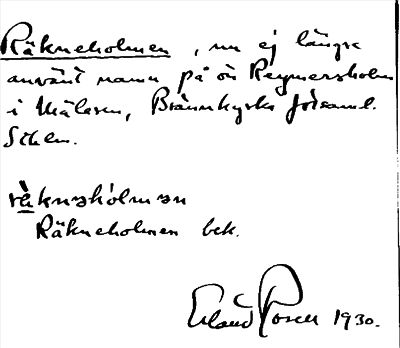 Räkneholmen, nu ej längre
använt namn på ön Reymersholm
i Mälaren, Brännkyrka församl.
Sthlm.
räknəhòlmən
Räkneholmen bek.
Erland Rosell 1930.